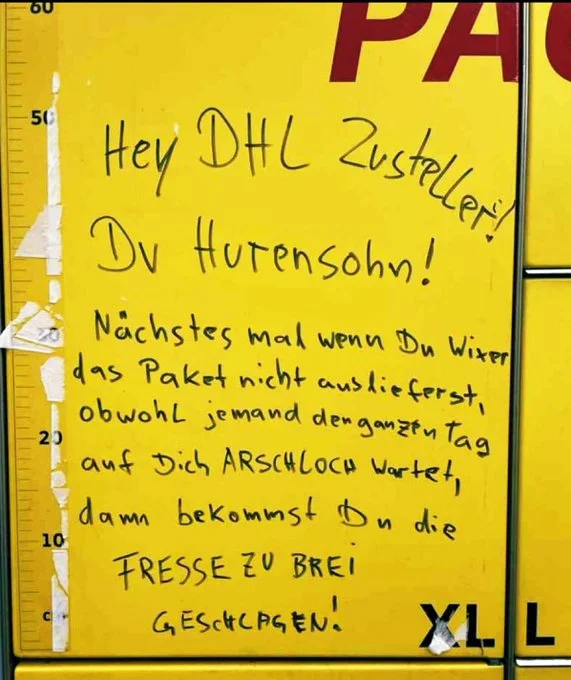 60
PAC
50
Hey DHL Zusteller!
Du Hurensohn!
Nächstes mal wenn Du Wixer
das Paket nicht auslieferst,
obwohl jemand den ganzen Tag
20
auf Dich ARSCHLOCH wartet,
dann bekommst Du die
10
FRESSE ZU BREI
GESCHLAGEN!
XL L